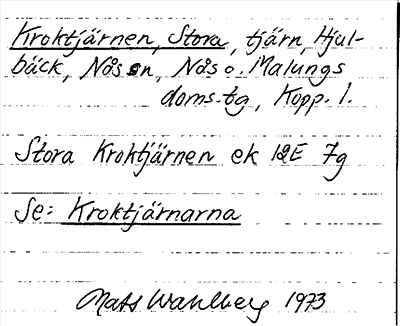 Kroktjärnen, Stora, tjärn, Hjul-
bäck, Nås sn, Nås o. Malungs
doms.tg, Kopp. l.
Stora Kroktjärnen ek 12E 7g
Se: Kroktjärnarna
Mats Wahlberg 1973